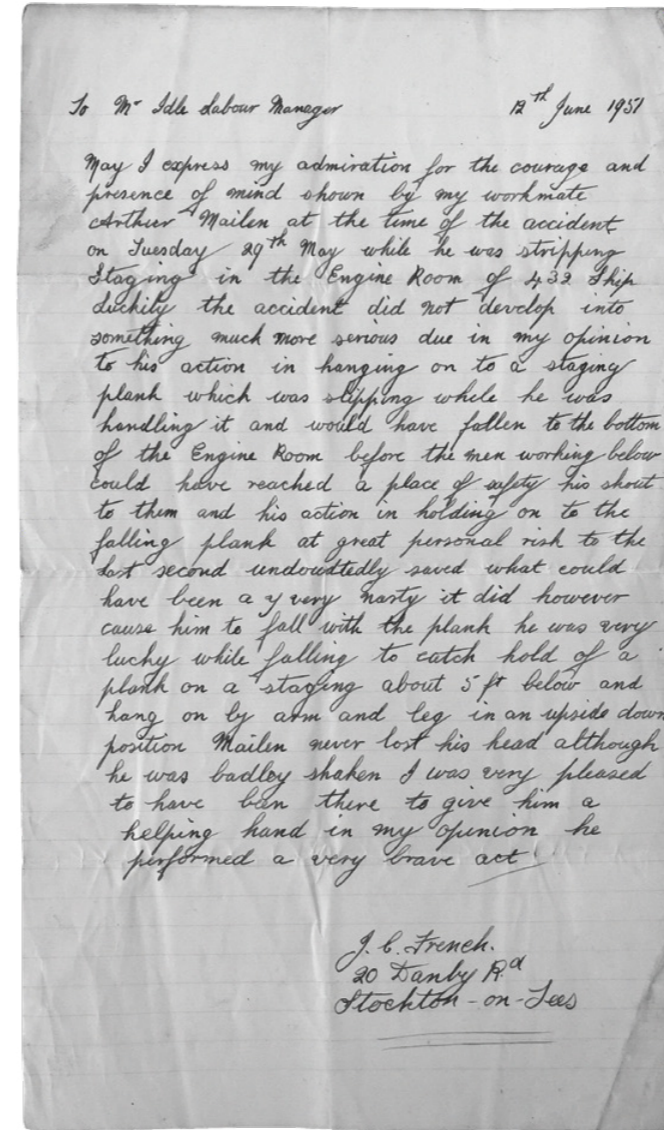 To Mr Idle Labour Manager 12th June 1951
May I express my admiration for the courage and
presence of mind shown by my workmate
Arthur Mailen at the time of the accident
on Tuesday 29th May while he was stripping
Staging in the Engine Room of 432 Ship
Luckily the accident did not develop into
something much more serious due in my opinion
to his action in hanging on to a staging
plank which was slipping while he was
handling it and would have fallen to the bottom
of the Engine Room before the men working below
could have reached a place of safety his shout
to them and his action in holding on to the
falling plank at great personal risk to the
last second undoubtedly saved what could
have been a y very nasty it did however
cause him to fall with the plank he was very
lucky while falling to catch hold of a
plank on a staging about 5 ft below and
hang on by arm and leg in an upside down
position Mailen never lost his head although
he was badley shaken I was very pleased
to have ban there to give him a
helping hand in my opunion he
performed a very brave act
J. C. French.
20 Danby Rd
Stockton-on-Tees